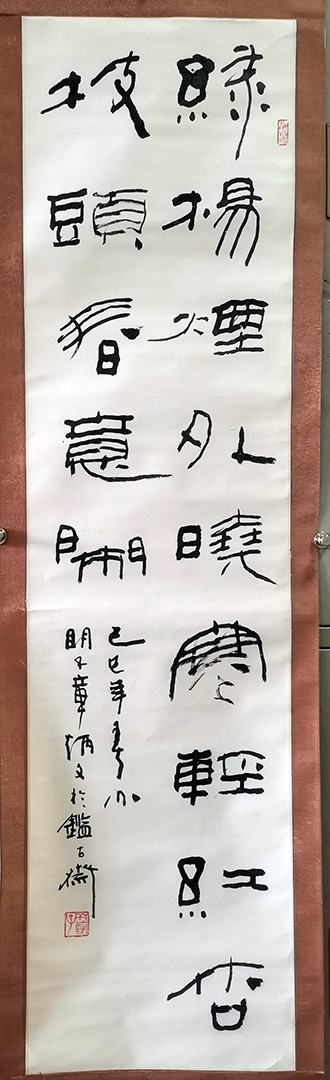 綠楊煙外曉寒輕紅杏
枝頭春意鬧
己巳年春
章炳文於鑑古齋